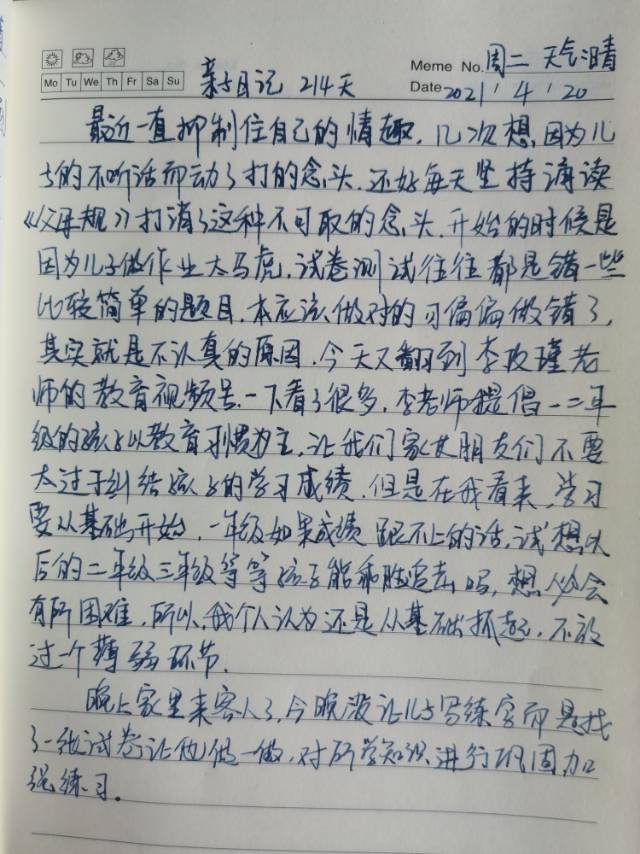 Meme No. 周二 天气:晴
Mo Tu We Th Fr Sa Su
亲子日记 214天
Date 2021 / 4 / 20
最近一直抑制住自己的情趣，几次想因为儿
子的不听话而动了打的念头，还好每天坚持诵读
《父母规》打消了这种不可取的念头，开始的时候是
因为儿子做作业太马虎，试卷测试往往都是错一些
比较简单的题目，本应该做对的可偏偏做错了，
其实就是不认真的原因，今天又翻到李玫瑾老
师的教育视频号，一下看了很多，李老师提倡一二年
级的孩子以教育习惯为主，让我们家长朋友们不要
太过于纠结孩子的学习成绩，但是在我看来，学习
要从基础开始，一年级如果成绩跟不上的话，试想以
后的二年级三年级等等孩子能乘胜追击吗，想必会
有所困难，所以，我个人认为还是从基础抓起，不放
过一个薄弱环节。
晚上家里来客人了，今晚没让儿子写练字而是找
了一张试卷让他做一做，对所学知识进行巩固加
强练习。